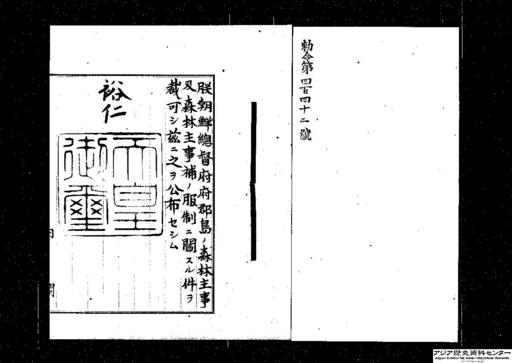 勅令第四百四十二號
朕朝鮮總督府府郡島ノ森林主事
及森林主事補ノ服制ニ關スル件ヲ
裁可シ茲ニ之ヲ公布セシム
裕仁
天皇
御璽
アジア歴史資料センター
Japan Center for Asian Historical Records